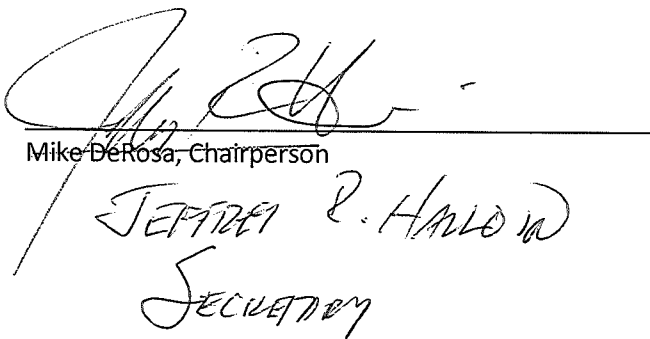 Mike DeRosa, Chairperson
JEFFREY R. HALLOIN
SECRETARY